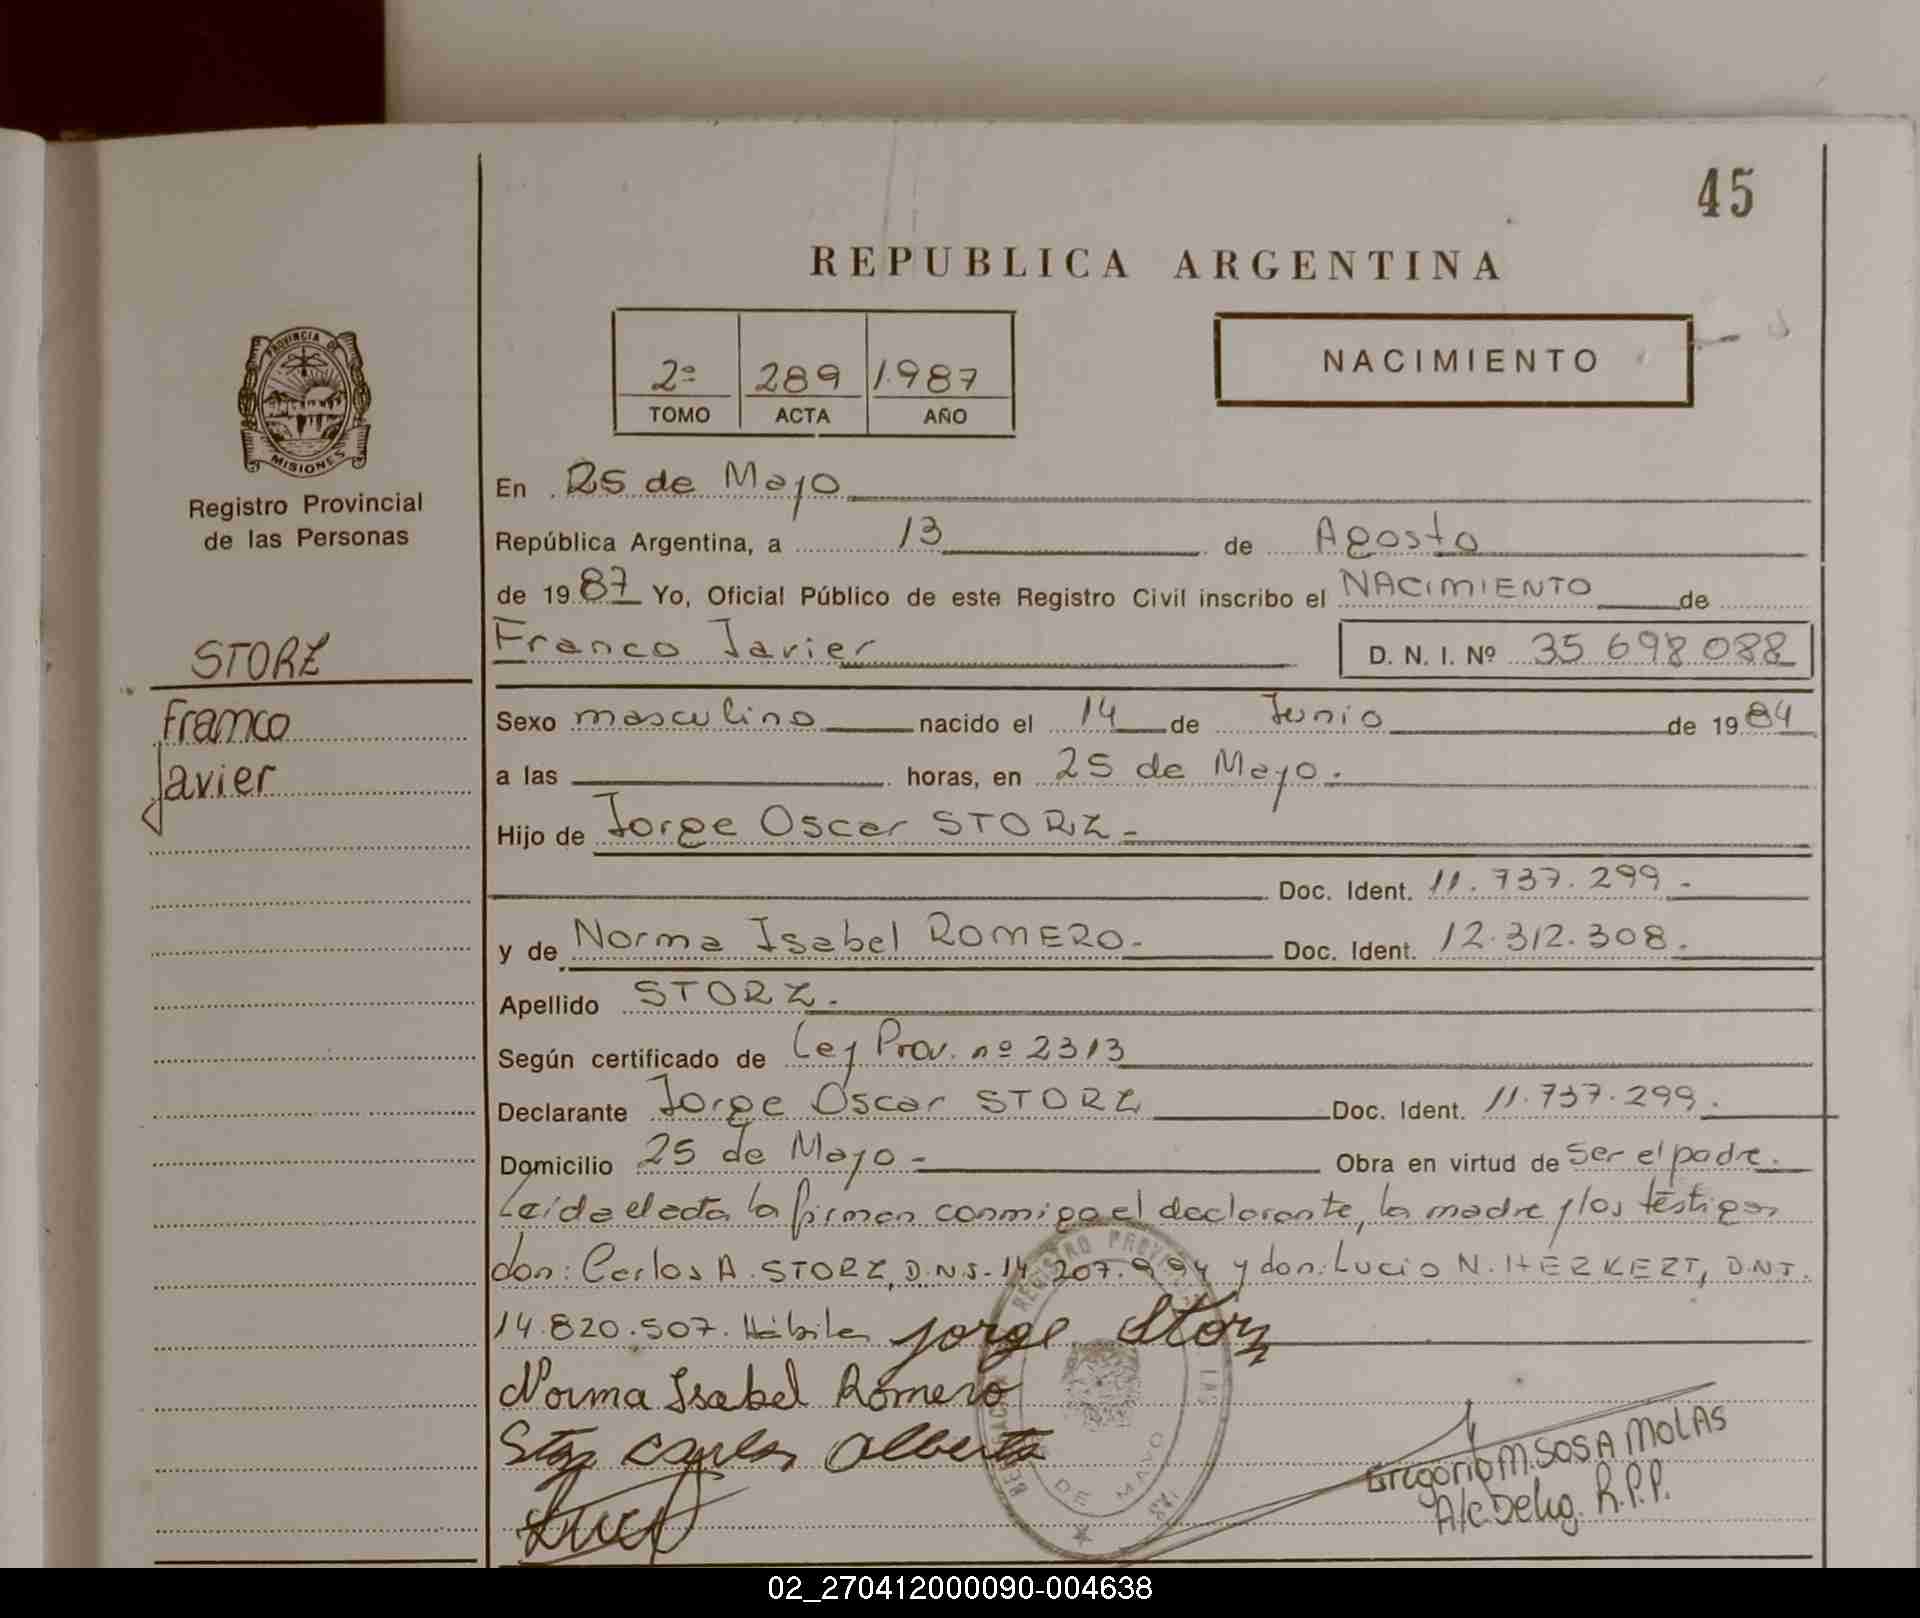 45
REPUBLICA ARGENTINA
PROVINCIA DE
MISIONES
Registro Provincial
de las Personas
2º 289 1.987
TOMO ACTA AÑO
NACIMIENTO
En 25 de Mayo
República Argentina, a 13 de Agosto
de 19 87 Yo, Oficial Público de este Registro Civil inscribo el NACIMIENTO de
STORZ
Franco Javier D. N. I. Nº 35 698 088
Franco
Javier
Sexo masculino nacido el 14 de Junio de 19 84
a las horas, en 25 de Mayo.
Hijo de Jorge Oscar STORZ -
Doc. Ident. 11.737.299.-
y de Norma Isabel ROMERO.- Doc. Ident. 12.312.308.
Apellido STORZ.
Según certificado de Ley Prov. nº 2313
Declarante Jorge Oscar STORZ Doc. Ident. 11.737.299.
Domicilio 25 de Mayo - Obra en virtud de Ser el padre.
Leída el acta la firman conmigo el declarante, la madre y los testigos
don: Carlos A. STORZ, D.N.I. 14.207.994 y don: Lucio N. HERKERT, D.N.I.
14.820.507. Hábiles Jorge Storz
Norma Isabel Romero
Storz Carlos Alberto
REGISTRO PROVINCIAL LAS
DE MAYO
Gregorio M. SOSA MOLAS
A/c Deleg. R.P.P.
02_270412000090-004638